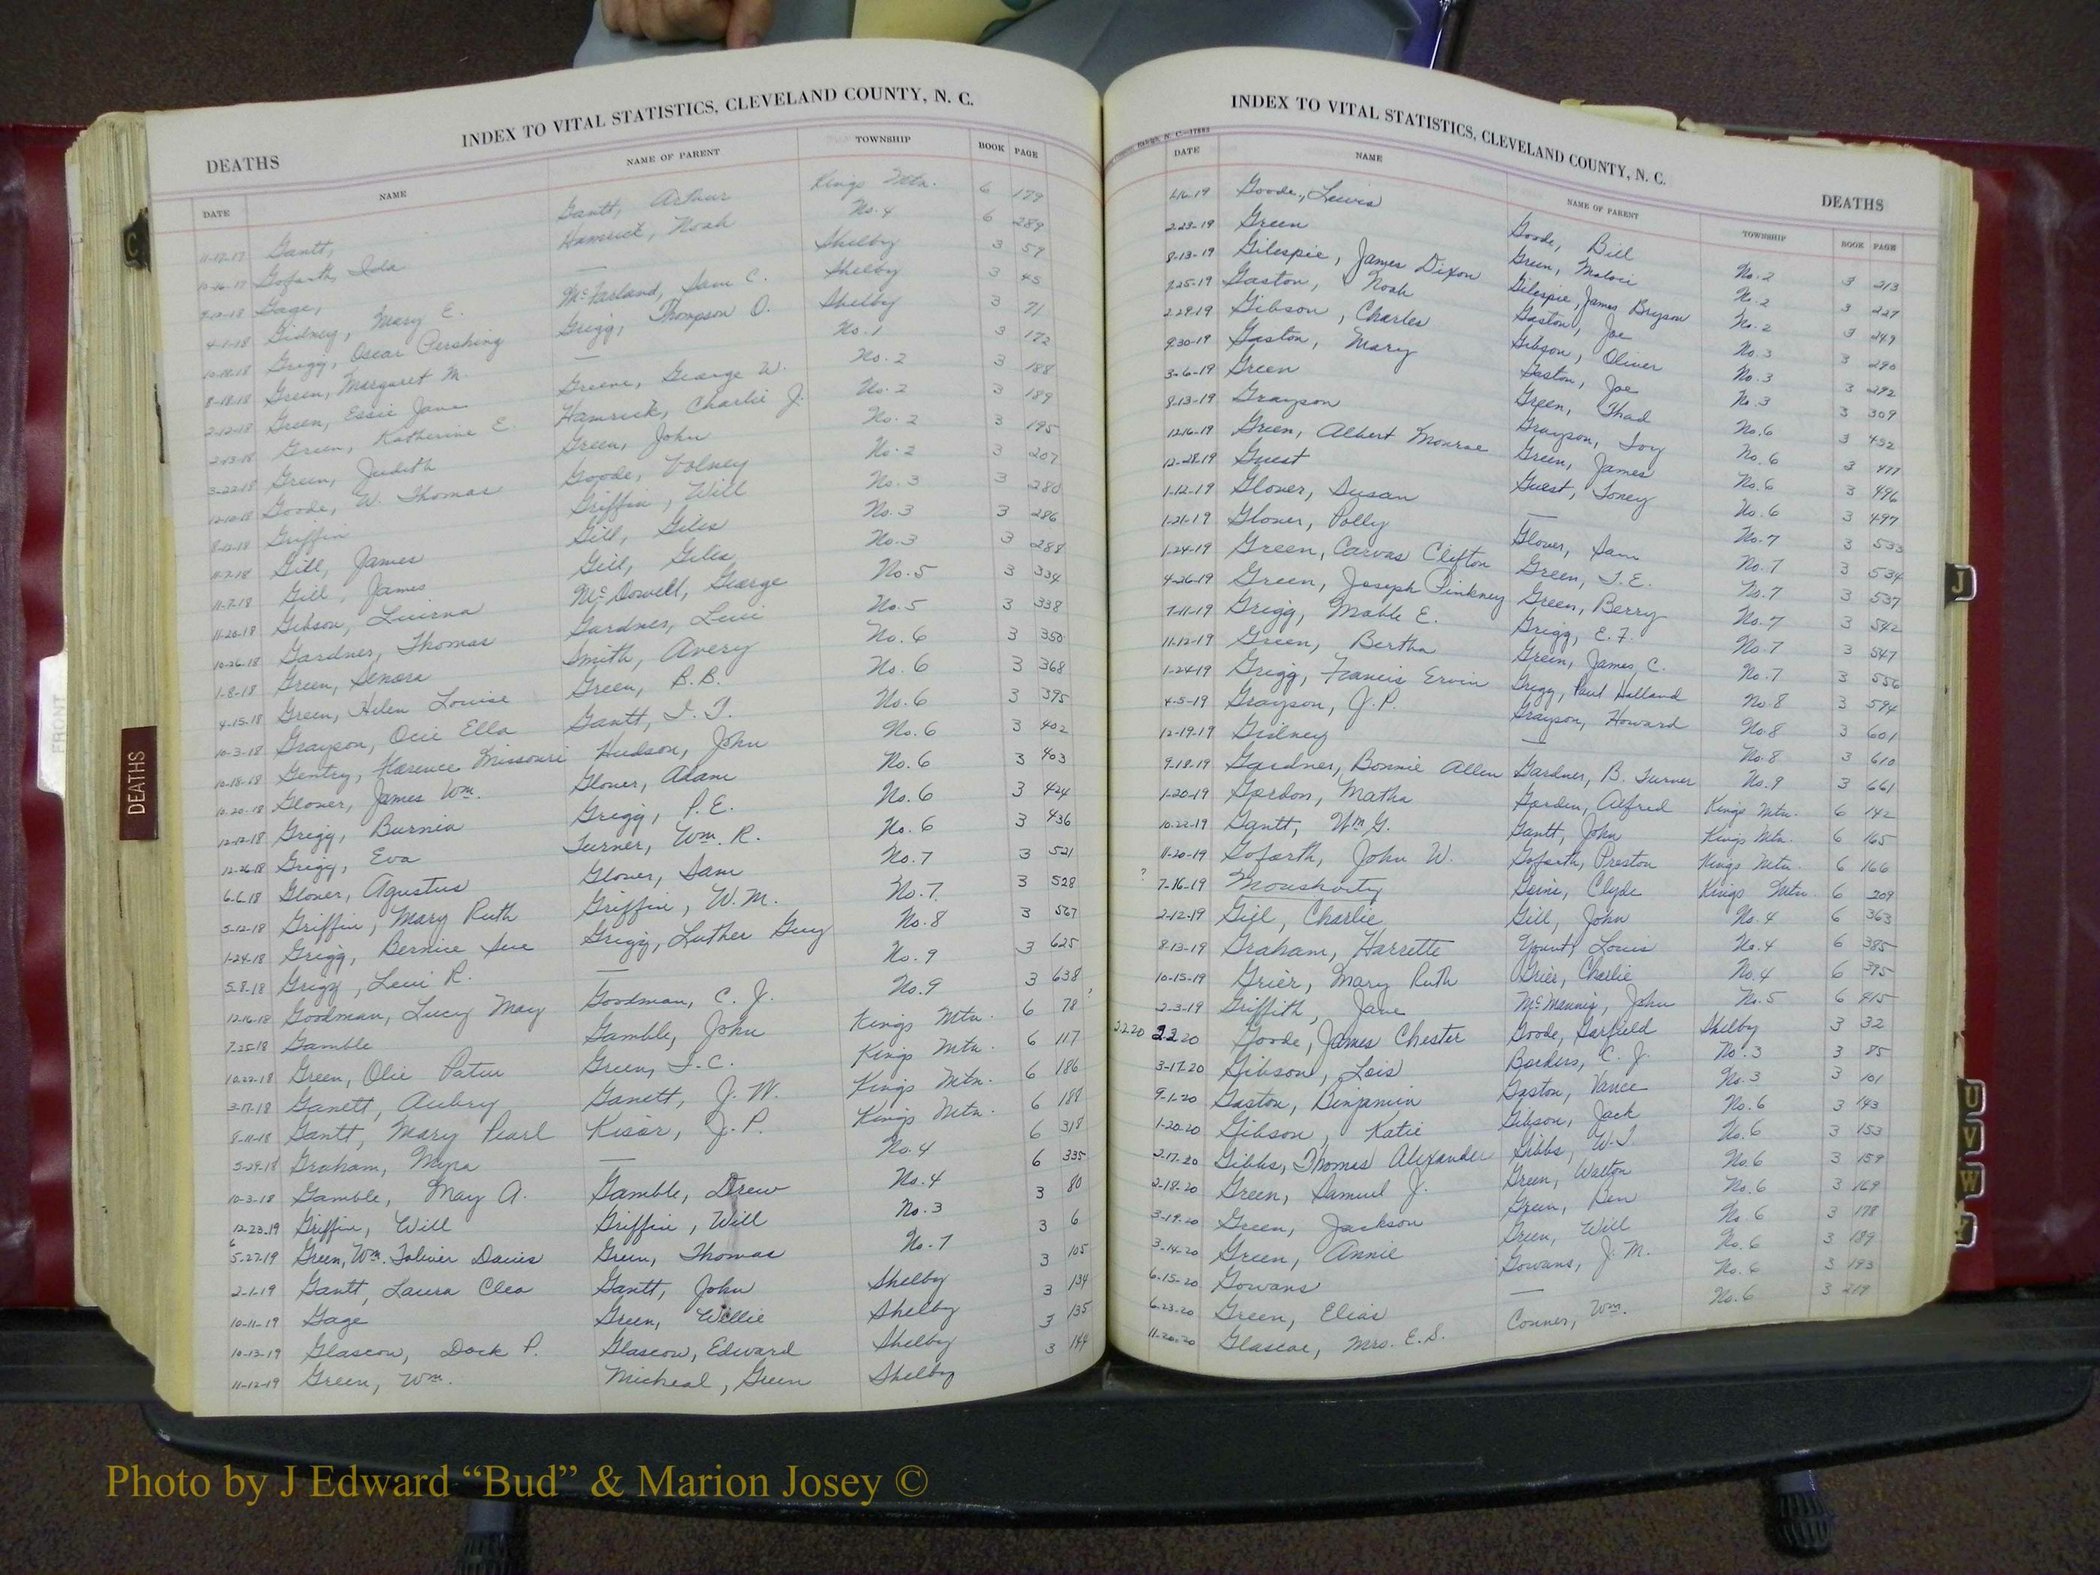 INDEX TO VITAL STATISTICS, CLEVELAND COUNTY, N. C.
DEATHS
DATE NAME NAME OF PARENT TOWNSHIP BOOK PAGE
11-17-17 Gantt, Gantt, Arthur Kings Mtn. 6 179
10-26-17 Goforth, Ida Hamrick, Noah No. 4 6 289
9-10-18 Gage, — Shelby 3 59
4-1-18 Gidney, Mary E. McFarland, Sam C. Shelby 3 45
10-18-18 Grigg, Oscar Pershing Grigg, Thompson O. Shelby 3 71
8-18-18 Green, Margaret M. — No. 1 3 172
2-12-18 Green, Essie Jane Greene, George W. No. 2 3 188
2-13-18 Green, Katherine E. Hamrick, Charlie J. No. 2 3 189
3-22-18 Green, Judith Green, John No. 2 3 195
12-10-18 Goode, W. Thomas Goode, Volney No. 2 3 207
8-12-18 Griffin Griffin, Will No. 3 3 280
11-7-18 Gill, James Gill, Giles No. 3 3 286
11-7-18 Gill, James Gill, Giles No. 3 3 288
11-20-18 Gibson, Luerna McDowell, George No. 5 3 334
10-26-18 Gardner, Thomas Gardner, Levi No. 5 3 338
1-8-18 Green, Senora Smith, Avery No. 6 3 350
4-15-18 Green, Helen Louise Green, B.B. No. 6 3 368
10-3-18 Grayson, Ocie Ella Gantt, I. T. No. 6 3 395
10-18-18 Gentry, Florence Missouri Hudson, John No. 6 3 402
10-20-18 Glover, James Wm. Glover, Adam No. 6 3 403
12-12-18 Grigg, Burnia Grigg, P.E. No. 6 3 424
12-26-18 Grigg, Eva Turner, Wm. R. No. 6 3 436
6-6-18 Glover, Agustus Glover, Sam No. 7 3 521
5-12-18 Griffin, Mary Ruth Griffin, W.M. No. 7 3 528
1-24-18 Grigg, Bernice Sue Grigg, Luther Guy No. 8 3 567
5-8-18 Grigg, Levi R. — No. 9 3 625
12-16-18 Goodman, Lucy May Goodman, C. J. No. 9 3 638
7-25-18 Gamble Gamble, John Kings Mtn. 6 78 ?
10-22-18 Green, Olie Green, I.C. Kings Mtn. 6 117
3-17-18 Ganett, Aubry Ganett, J. W. Kings Mtn. 6 186
8-11-18 Gantt, Mary Pearl Kiser, J. P. Kings Mtn. 6 188
5-29-18 Graham, Myra — No. 4 6 318
10-3-18 Gamble, May A. Gamble, Drew No. 4 6 335
12-23-19 Griffin, Will Griffin, Will No. 3 3 80
5-22-19 Green, Wm. Toliver Davis Green, Thomas No. 7 3 6
2-1-19 Gantt, Laura Cleo Gantt, John Shelby 3 105
10-11-19 Gage Green, Willie Shelby 3 134
10-13-19 Glascow, Dock P. Glascow, Edward Shelby 3 135
11-12-19 Green, Wm. Micheal, Green Shelby 3 144
INDEX TO VITAL STATISTICS, CLEVELAND COUNTY, N. C.
DEATHS
DATE NAME NAME OF PARENT TOWNSHIP BOOK PAGE
1-16-19 Goode, Lewis Goode, Bill No. 2 3 213
2-23-19 Green Green, No. 2 3 227
8-13-19 Gilespie, James Dixon Gilespie, James Bryson No. 2 3 249
7-25-19 Gaston, Noah Gaston, Joe No. 3 3 290
2-29-19 Gibson, Charles Gibson, Oliver No. 3 3 292
9-30-19 Gaston, Mary Gaston, Joe No. 3 3 309
3-6-19 Green Green, Thad No. 6 3 432
8-13-19 Grayson Grayson, Ivy No. 6 3 477
12-16-19 Green, Albert Monroe Green, James No. 6 3 496
12-28-19 Guest Guest, Toney No. 6 3 497
1-12-19 Glover, Susan — No. 7 3 533
1-21-19 Glover, Polly Glover, Sam No. 7 3 534
1-24-19 Green, Carvas Clifton Green, T.E. No. 7 3 537
4-26-19 Green, Joseph Pinkney Green, Berry No. 7 3 542
7-11-19 Grigg, Mable E. Grigg, E. F. No. 7 3 547
11-12-19 Green, Bertha Green, James C. No. 7 3 556
1-24-19 Grigg, Francis Ervin Grigg, Paul Holland No. 8 3 594
4-5-19 Grayson, J. P. Grayson, Howard No. 8 3 601
12-19-19 Gidney — No. 8 3 610
9-18-19 Gardner, Bonnie Allen Gardner, B. Turner No. 9 3 661
1-20-19 Gordon, Matha Gorden, Alfred Kings Mtn. 6 142
10-22-19 Gantt, Wm. G. Gantt, John Kings Mtn. 6 165
11-20-19 Goforth, John W. Goforth, Preston Kings Mtn. 6 166
? 7-16-19 Goins, Clyde Kings Mtn. 6 209
2-12-19 Gill, Charlie Gill, John No. 4 6 363
8-13-19 Graham, Harrette Yount, Louis No. 4 6 385
10-15-19 Grier, Mary Ruth Grier, Charlie No. 4 6 395
2-3-19 Griffith, Jane McManus, John No. 5 6 415
2.2.20 2.2.20 Goode, James Chester Goode, Garfield Shelby 3 32
3-17-20 Gibson, Lois Borders, C. J. No. 3 3 85
9-1-20 Gaston, Binjamin Gaston, Vance No. 3 3 101
1-20-20 Gibson, Katie Gibson, Jack No. 6 3 143
2-17-20 Gibbs, Thomas Alexander Gibbs, W.T. No. 6 3 153
2-18-20 Green, Samuel J. Green, Walton No. 6 3 159
3-19-20 Green, Jackson Green, Ben No. 6 3 169
3-14-20 Green, Annie Green, Will No. 6 3 178
6-15-20 Gowans Gowans, J. M. No. 6 3 189
6-23-20 Green, Elias — No. 6 3 193
11-20-20 Glascoe, Mrs. E. S. Conner, Wm. No. 6 3 219
C
FRONT
DEATHS
J
U
V
W
Photo by J Edward “Bud” & Marion Josey ©